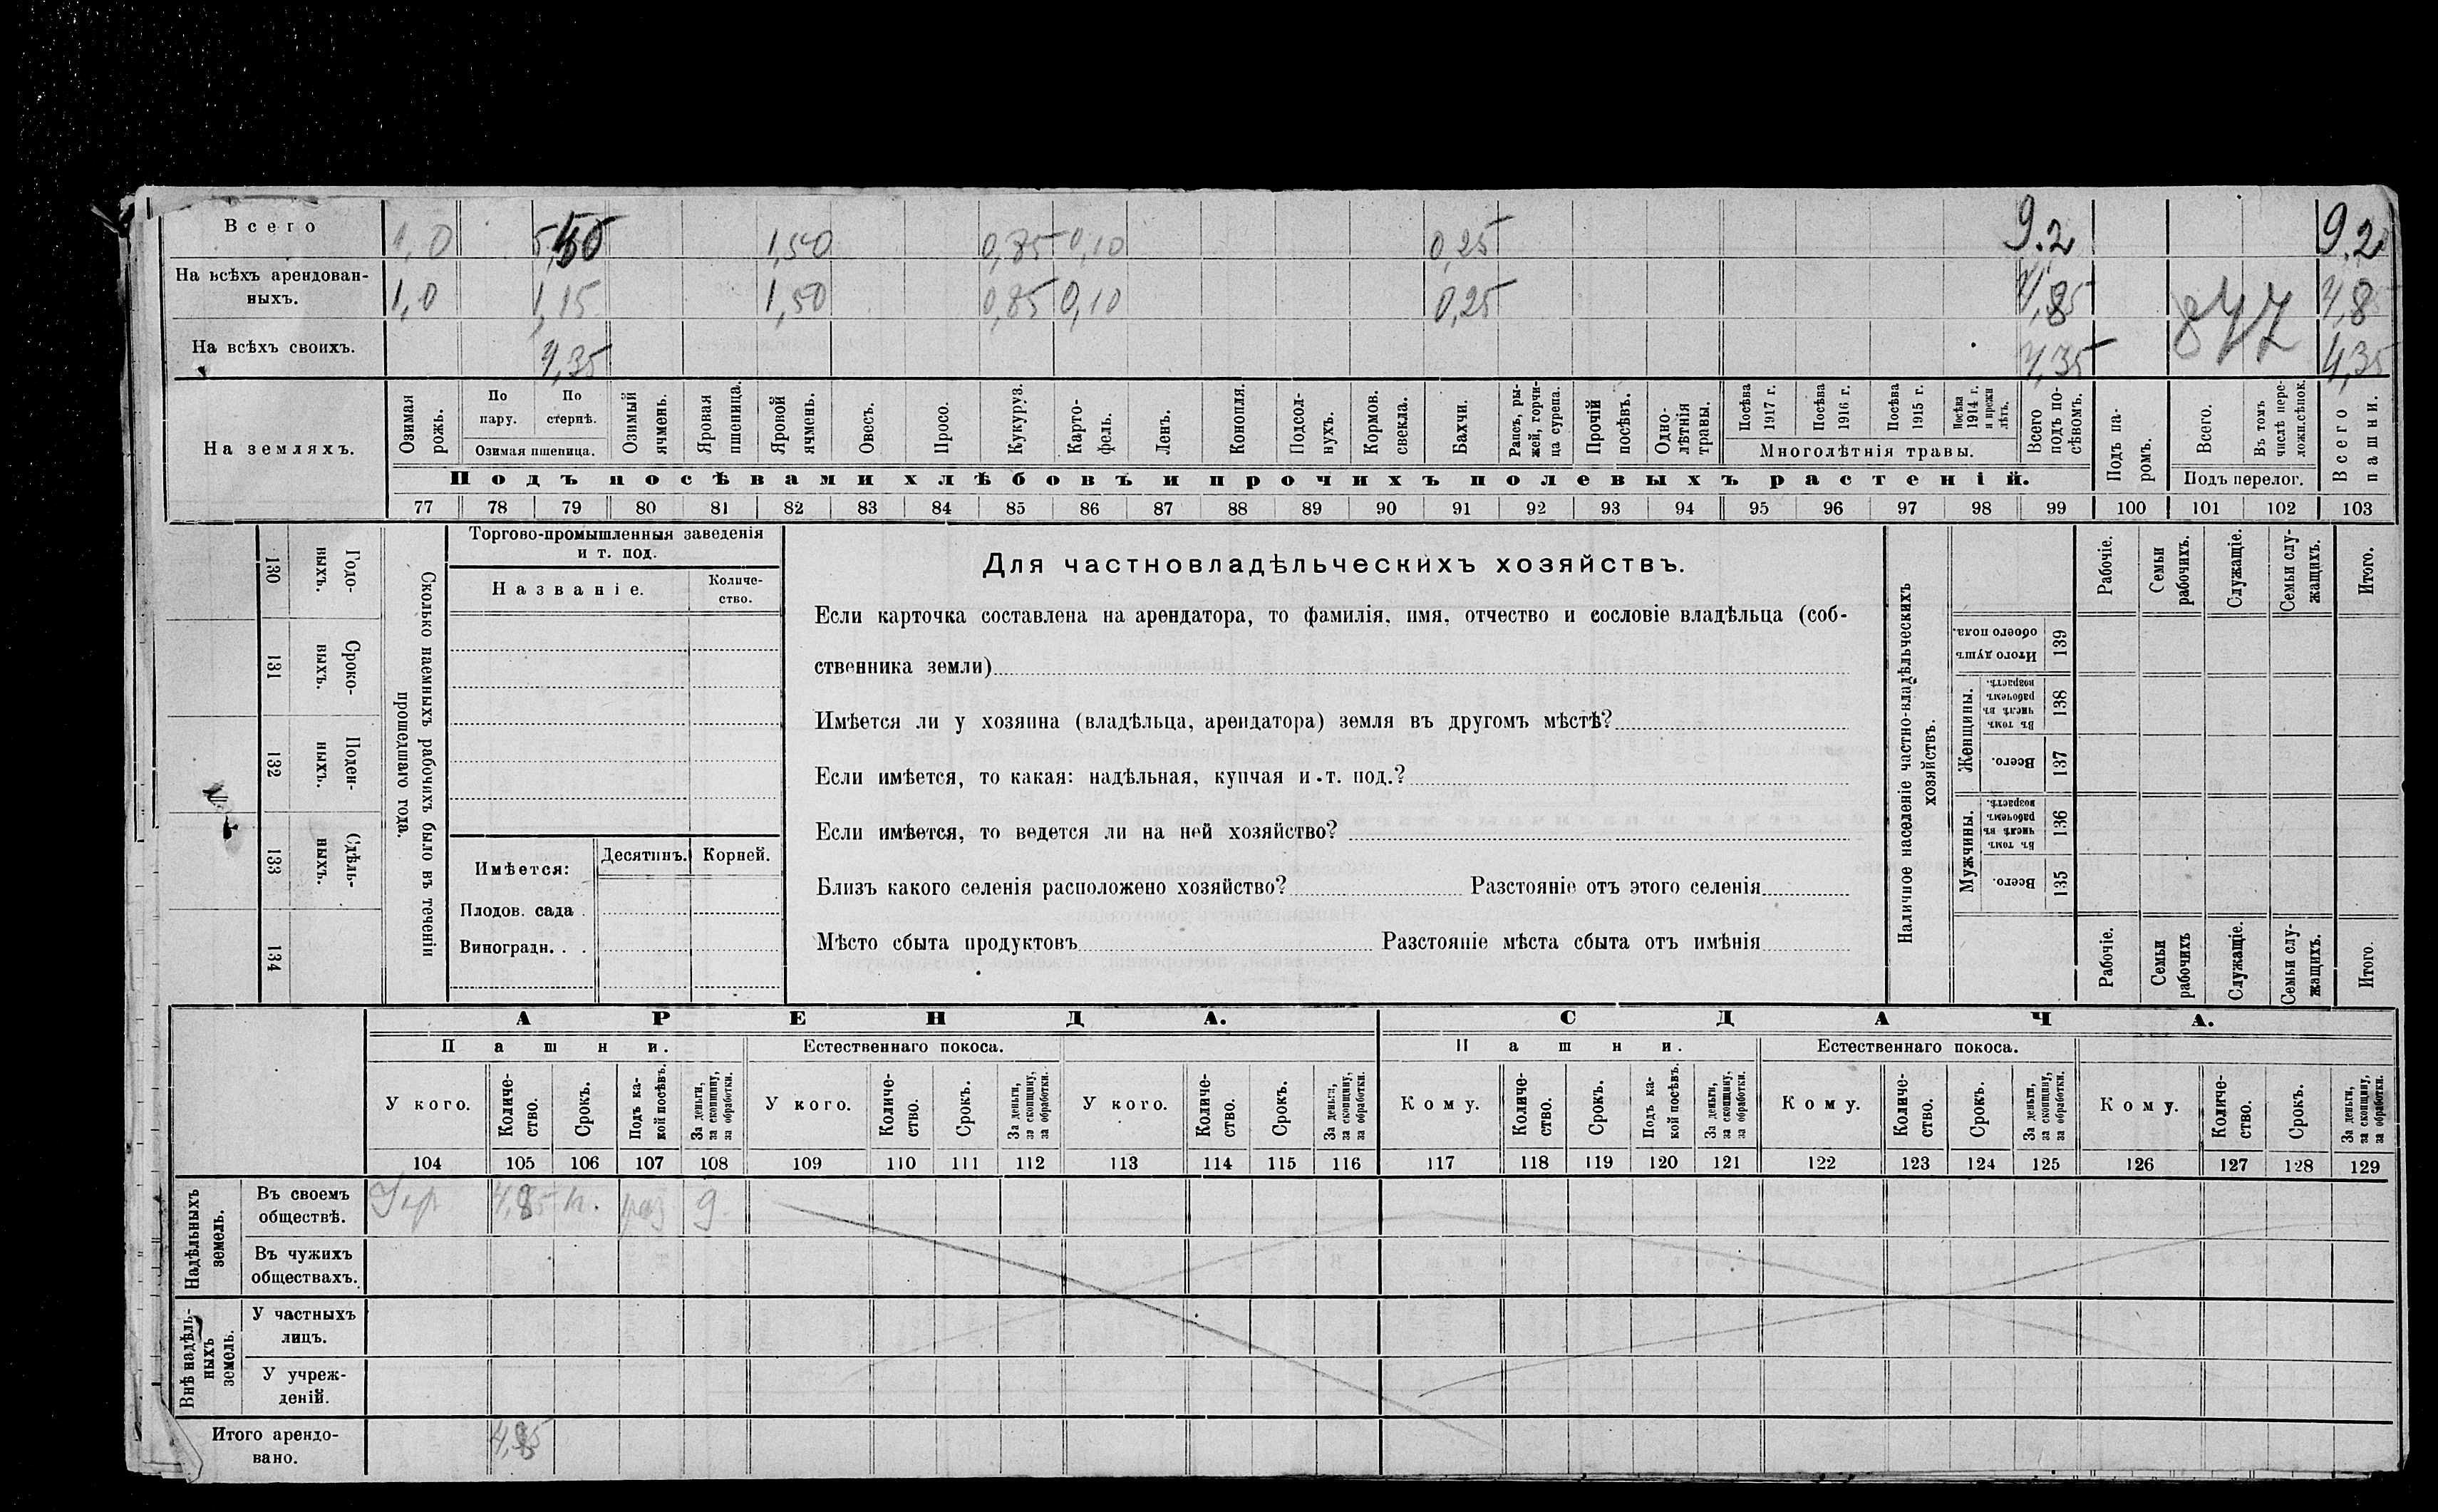 Всего 1,0 5,50 1,50 0,85 0,10 0,25 9.2 9.2
На всѣхъ арендован-
ныхъ. 1,0 1,15 1,50 0,85 0,10 0,25 4,85 847 4,85
На всѣхъ своихъ. 4,35 4,35 4,35
На земляхъ.
Озимая рожь.
По пару.
По стернѣ.
Озимая пшеница.
Озимый ячмень.
Яровая пшеница.
Яровой ячмень.
Овесъ.
Просо.
Кукуруз.
Карто-
фель.
Ленъ.
Конопля.
Подсол-
нухъ.
Кормов. свекла.
Бахчи.
Рапсъ, ры-
жей, горчи-
ца сурепа.
Прочій посѣвъ.
Одно-
лѣтнія травы.
Посѣва 1917 г.
Посѣва 1916 г.
Посѣва 1915 г.
Посѣва 1914 г. и прежн лѣтъ.
Многолѣтнія травы.
Всего подъ по-
сѣвомъ.
Подъ па-
ромъ.
Всего.
Въ томъ числѣ пере-
ложн.сѣнок.
Подъ перелог.
Всего пашни.
Подъ посѣвами хлѣбовъ и прочихъ полевыхъ растеній.
77 78 79 80 81 82 83 84 85 86 87 88 89 90 91 92 93 94 95 96 97 98 99 100 101 102 103
130 Годо-
ныхъ.
131 Сроко-
выхъ.
132 Поден-
ныхъ.
133 Сдѣль-
ныхъ.
134
Сколько наемныхъ рабочихъ было въ теченіи
прошедшаго года.
Торгово-промышленныя заведенія
и т. под.
Названіе.
Количе-
ство.
Имѣется: Десятинъ. Корней.
Плодов. сада .
Виноградн. . .
Для частновладѣльческихъ хозяйствъ.
Если карточка составлена на арендатора, то фамилія, имя, отчество и сословіе владѣльца (соб-
ственника земли)
Имѣется ли у хозяина (владѣльца, арендатора) земля въ другомъ мѣстѣ?
Если имѣется, то какая: надѣльная, купчая и т. под.?
Если имѣется, то ведется ли на ней хозяйство?
Близъ какого селенія расположено хозяйство? Разстояніе отъ этого селенія
Мѣсто сбыта продуктовъ Разстояніе мѣста сбыта отъ имѣнія
Наличное населеніе частно-владѣльческихъ
хозяйствъ.
Рабочіе.
Семьи рабочихъ.
Служащіе.
Семьи слу-
жащихъ.
Итого.
Итого душъ обоего пола. 139
Женщины.
Въ томъ числѣ въ рабочемъ возрастѣ. 138
Всего. 137
Мужчины.
Въ томъ числѣ въ рабочемъ возрастѣ. 136
Всего. 135
Рабочіе.
Семьи рабочихъ
Служащіе.
Семьи слу-
жащихъ.
Итого.
АРЕНДА. СДАЧА.
Пашни. Естественнаго покоса. Пашни. Естественнаго покоса.
У кого.
Количе-
ство.
Срокъ.
Подъ ка-
кой посѣвъ.
За деньги,
за скопщину,
за обработки.
У кого.
Количе-
ство.
Срокъ.
За деньги,
за скопщину,
за обработки.
У кого.
Количе-
ство.
Срокъ.
За деньги,
за скопщину,
за обработки.
Кому.
Количе-
ство.
Срокъ.
Подъ ка-
кой посѣвъ.
За деньги,
за скопщину,
за обработки.
Кому.
Количе-
ство.
Срокъ.
За деньги,
за скопщину,
за обработки.
Кому.
Количе-
ство.
Срокъ.
За деньги,
за скопщину,
за обработки.
104 105 106 107 108 109 110 111 112 113 114 115 116 117 118 119 120 121 122 123 124 125 126 127 128 129
Надѣльныхъ
земель.
Въ своемъ
обществѣ. 4,85 раз
Въ чужихъ
обществахъ.
Внѣ надѣль-
ныхъ
земель.
У частныхъ
лицъ.
У учреж-
деній.
Итого арендо-
вано. 4,85